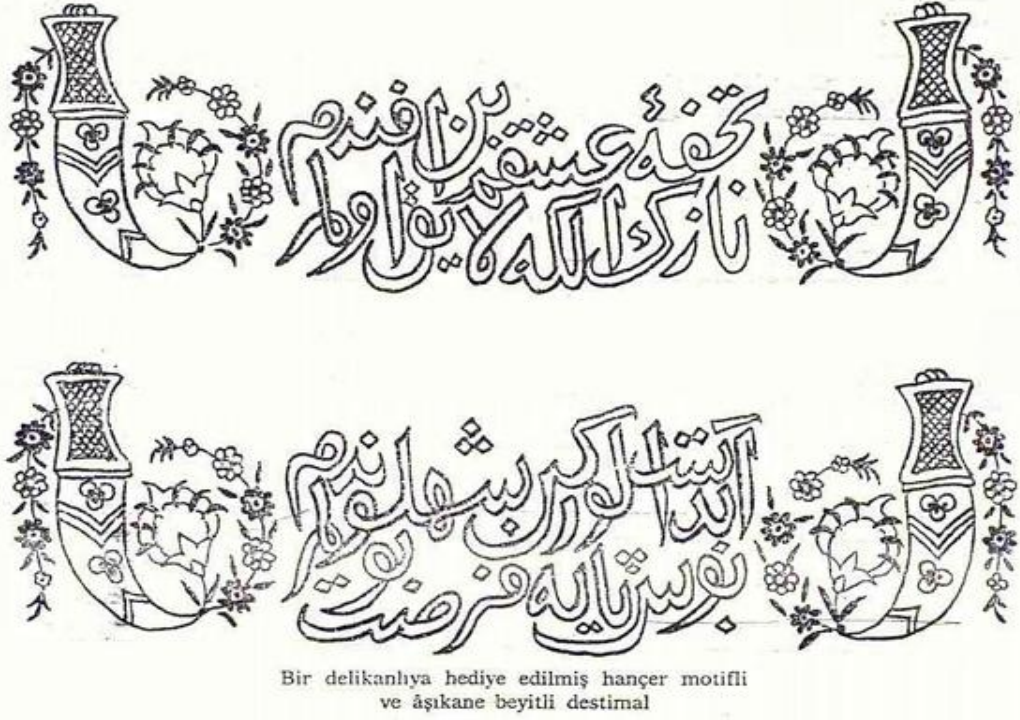 تحفۀ عشقم بن افندم
نازك الكه لايق اولم
آبدست الوركن شهلوندم
بوس پايه فرصت بولم
Bir delikanlıya hediye edilmiş hançer motifli
ve âşıkane beyitli destimal